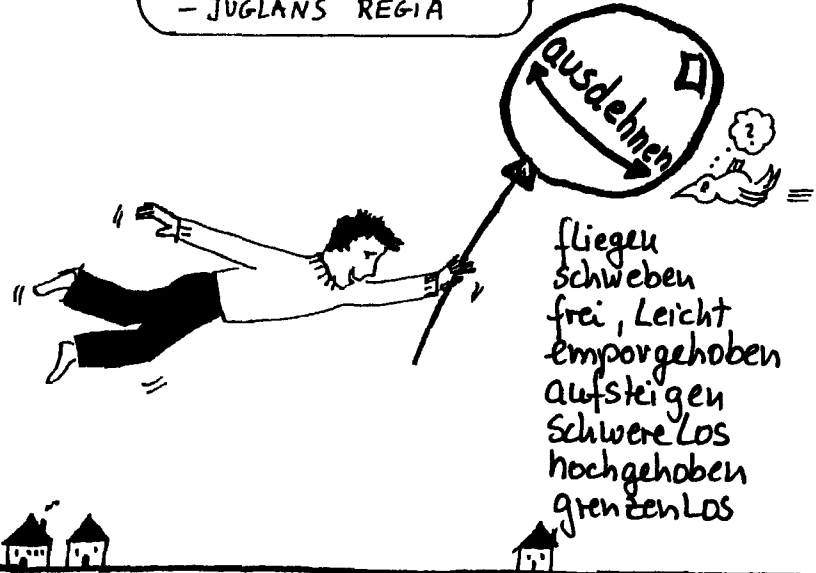 – JUGLANS REGIA
ausdehnen
?
fliegen
schweben
frei, Leicht
emporgehoben
aufsteigen
schwereLos
hochgehoben
grenzenLos